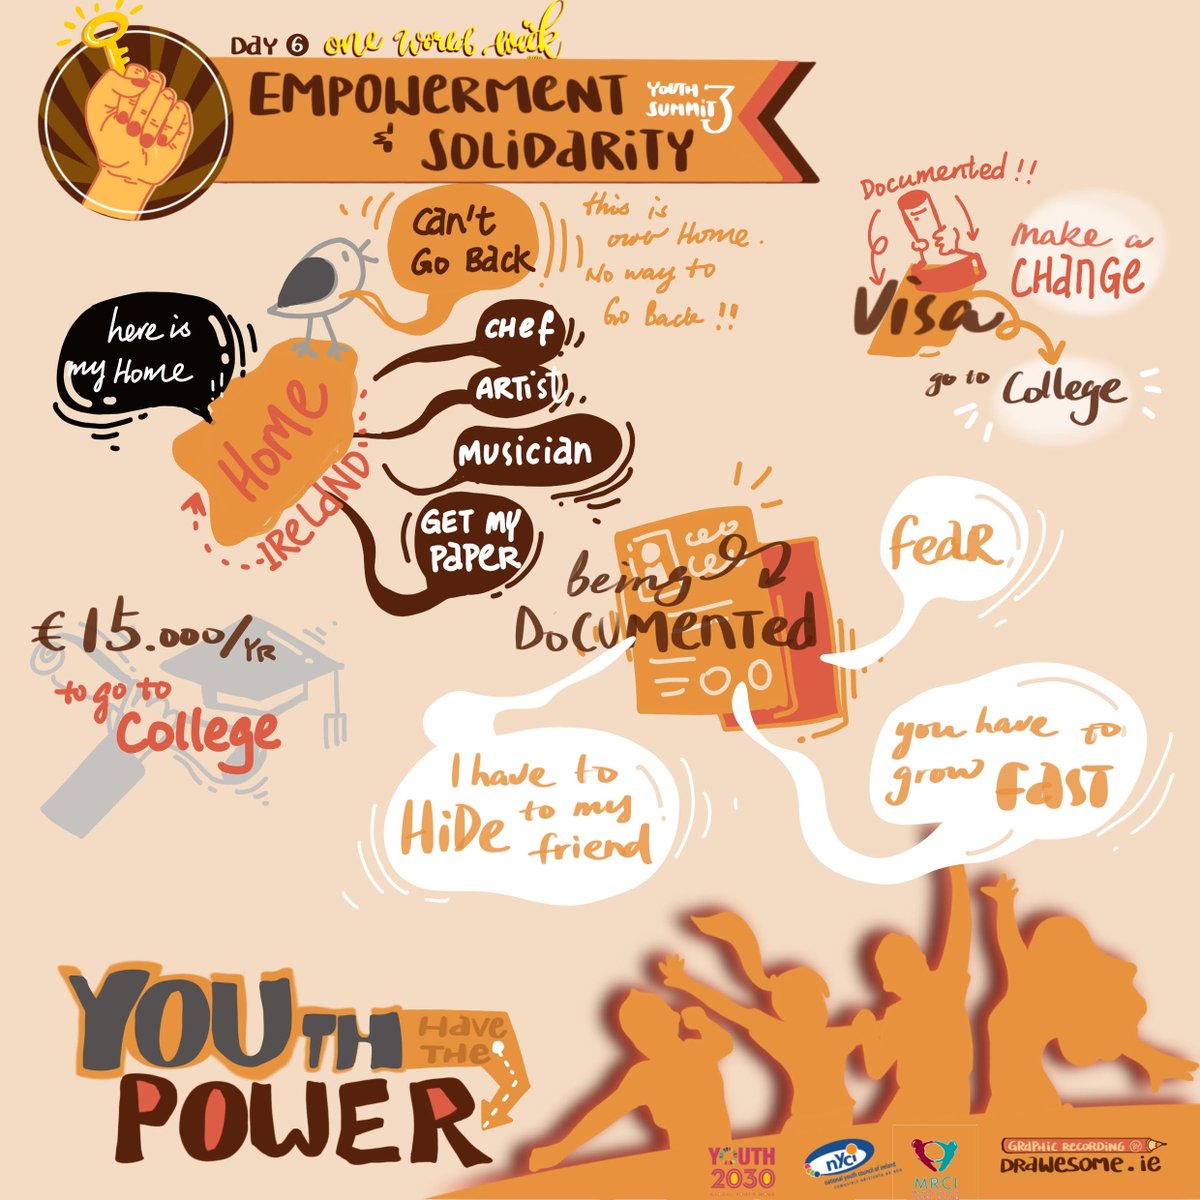 Day 6 one world week
EMPOWERMENT
& SOLIDARITY
YOUTH
SUMMIT 3
Can't
Go Back
this is
our Home.
No way to
Go Back !!
Documented !!
make a
CHANGE
Visa
go to College
here is
my Home !!
Home
IRELAND
CHEF
ARTIST
MUSICIAN
GET MY
PAPER
being
DOCUMENTED
fear
€15.000/YR
to go to
College
I have to
HiDe to my
friend
you have to
grow FAST
YOUTH
HAVE
THE
POWER
YOUTH
2030
nyci
national youth council of ireland
MRCI
GRAPHIC RECORDING
DRAWESOME.ie